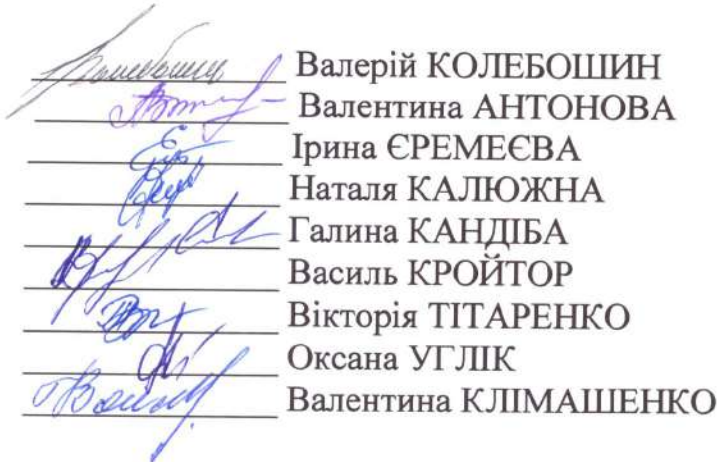 Валерій КОЛЕБОШИН
Валентина АНТОНОВА
Ірина ЄРЕМЕЄВА
Наталя КАЛЮЖНА
Галина КАНДІБА
Василь КРОЙТОР
Вікторія ТІТАРЕНКО
Оксана УГЛІК
Валентина КЛІМАШЕНКО